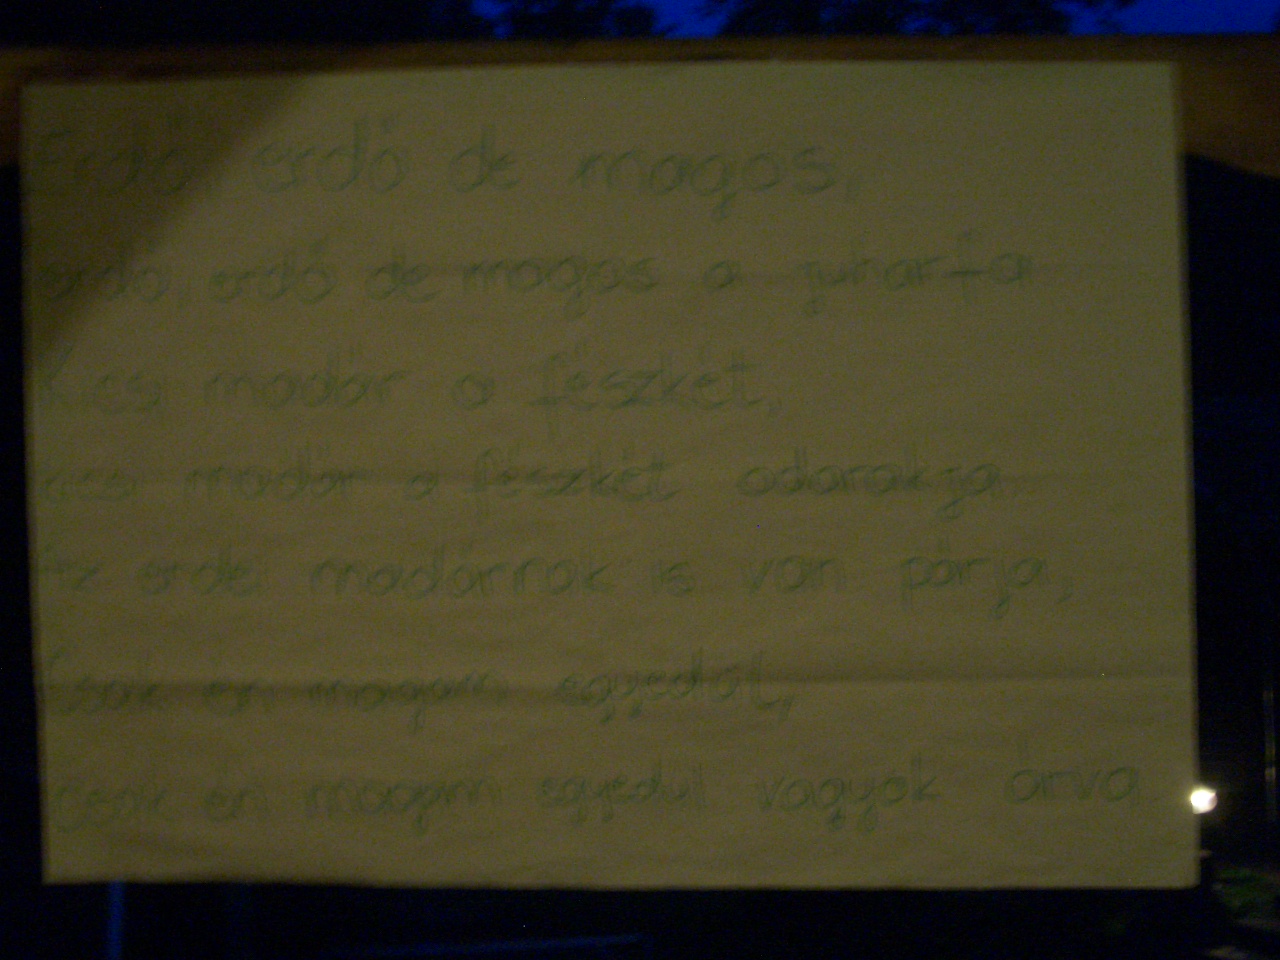 Erdő, erdő de magos,
erdő, erdő de magas a juharfa
Kicsi madár a fészkét,
kicsi madár a fészkét odarakja
Az erdei madárnak is van párja,
Csak én magam egyedül,
csak én magam egyedül vagyok árva